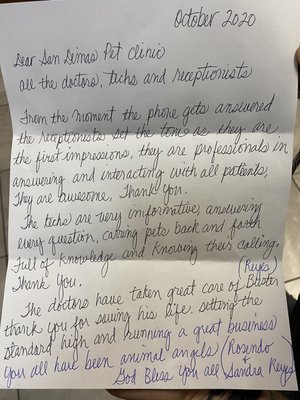 October 2020
Dear San Dimas Pet Clinic
all the doctors, techs and receptionists
From the moment the phone gets answered
the receptionists set the tone as they are
the first impressions, they are professionals in
answering and interacting with all patients,
They are awesome. Thank you.
The techs are very informative, answering
every question, carring pets back and forth
Full of knowledge and knowing their calling.
Thank You.
(Reyes)
The doctors have taken great care of Buster
thank you for saving his life. setting the
standard high and running a great business
You all have been animal angels (Rosendo
God Bless you all & Sandra Reyes)